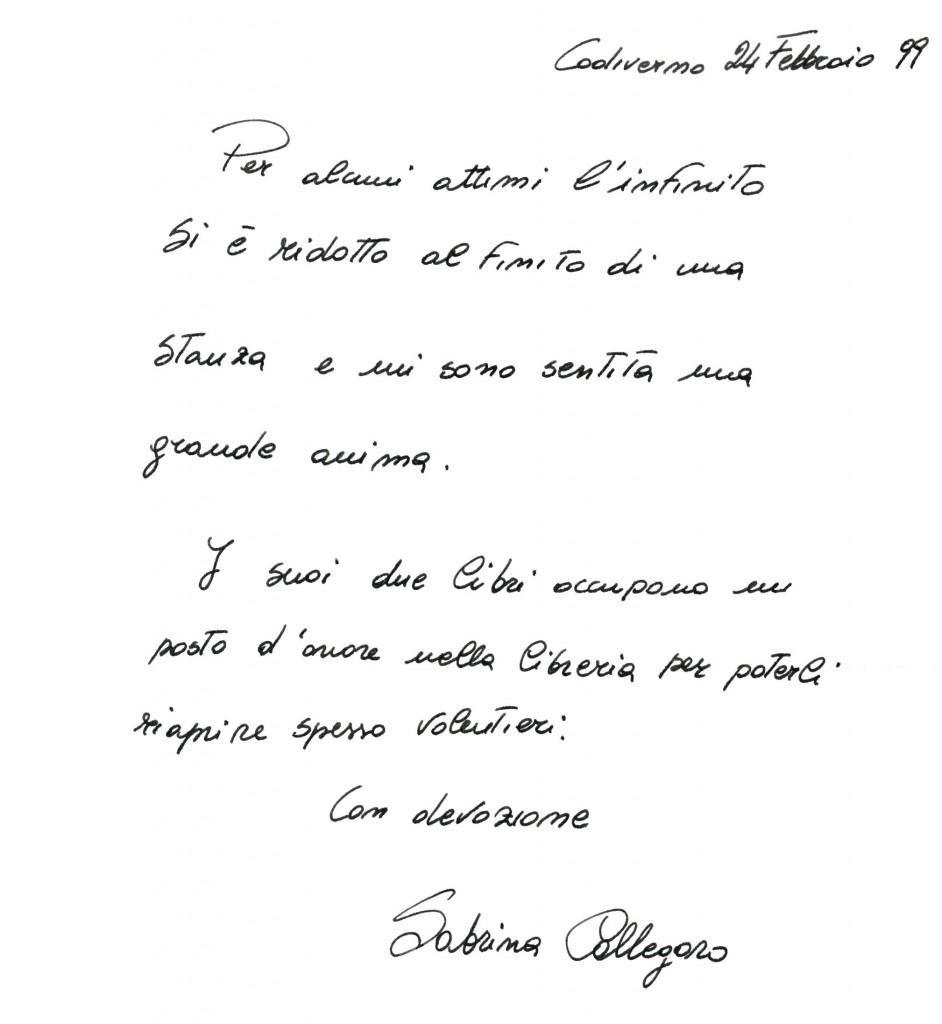 Codiverno 24 Febbraio 99
Per alcuni attimi l'infinito
si è ridotto al finito di una
stanza e mi sono sentita una
grande anima.
I suoi due libri occupano un
posto d'onore nella libreria per poterli
riaprire spesso volentieri.
Con devozione
Sabrina Collegaro